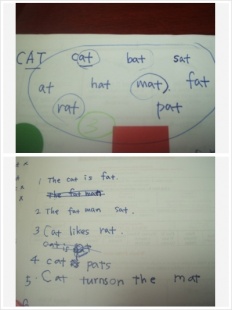 CAT cat bat sat
at hat mat fat
rat pat
1 The cat is fat.
The fat man
2 The fat man sat.
3 Cat likes rat.
Cat is
4 cat pats
5. Cat turns on the mat